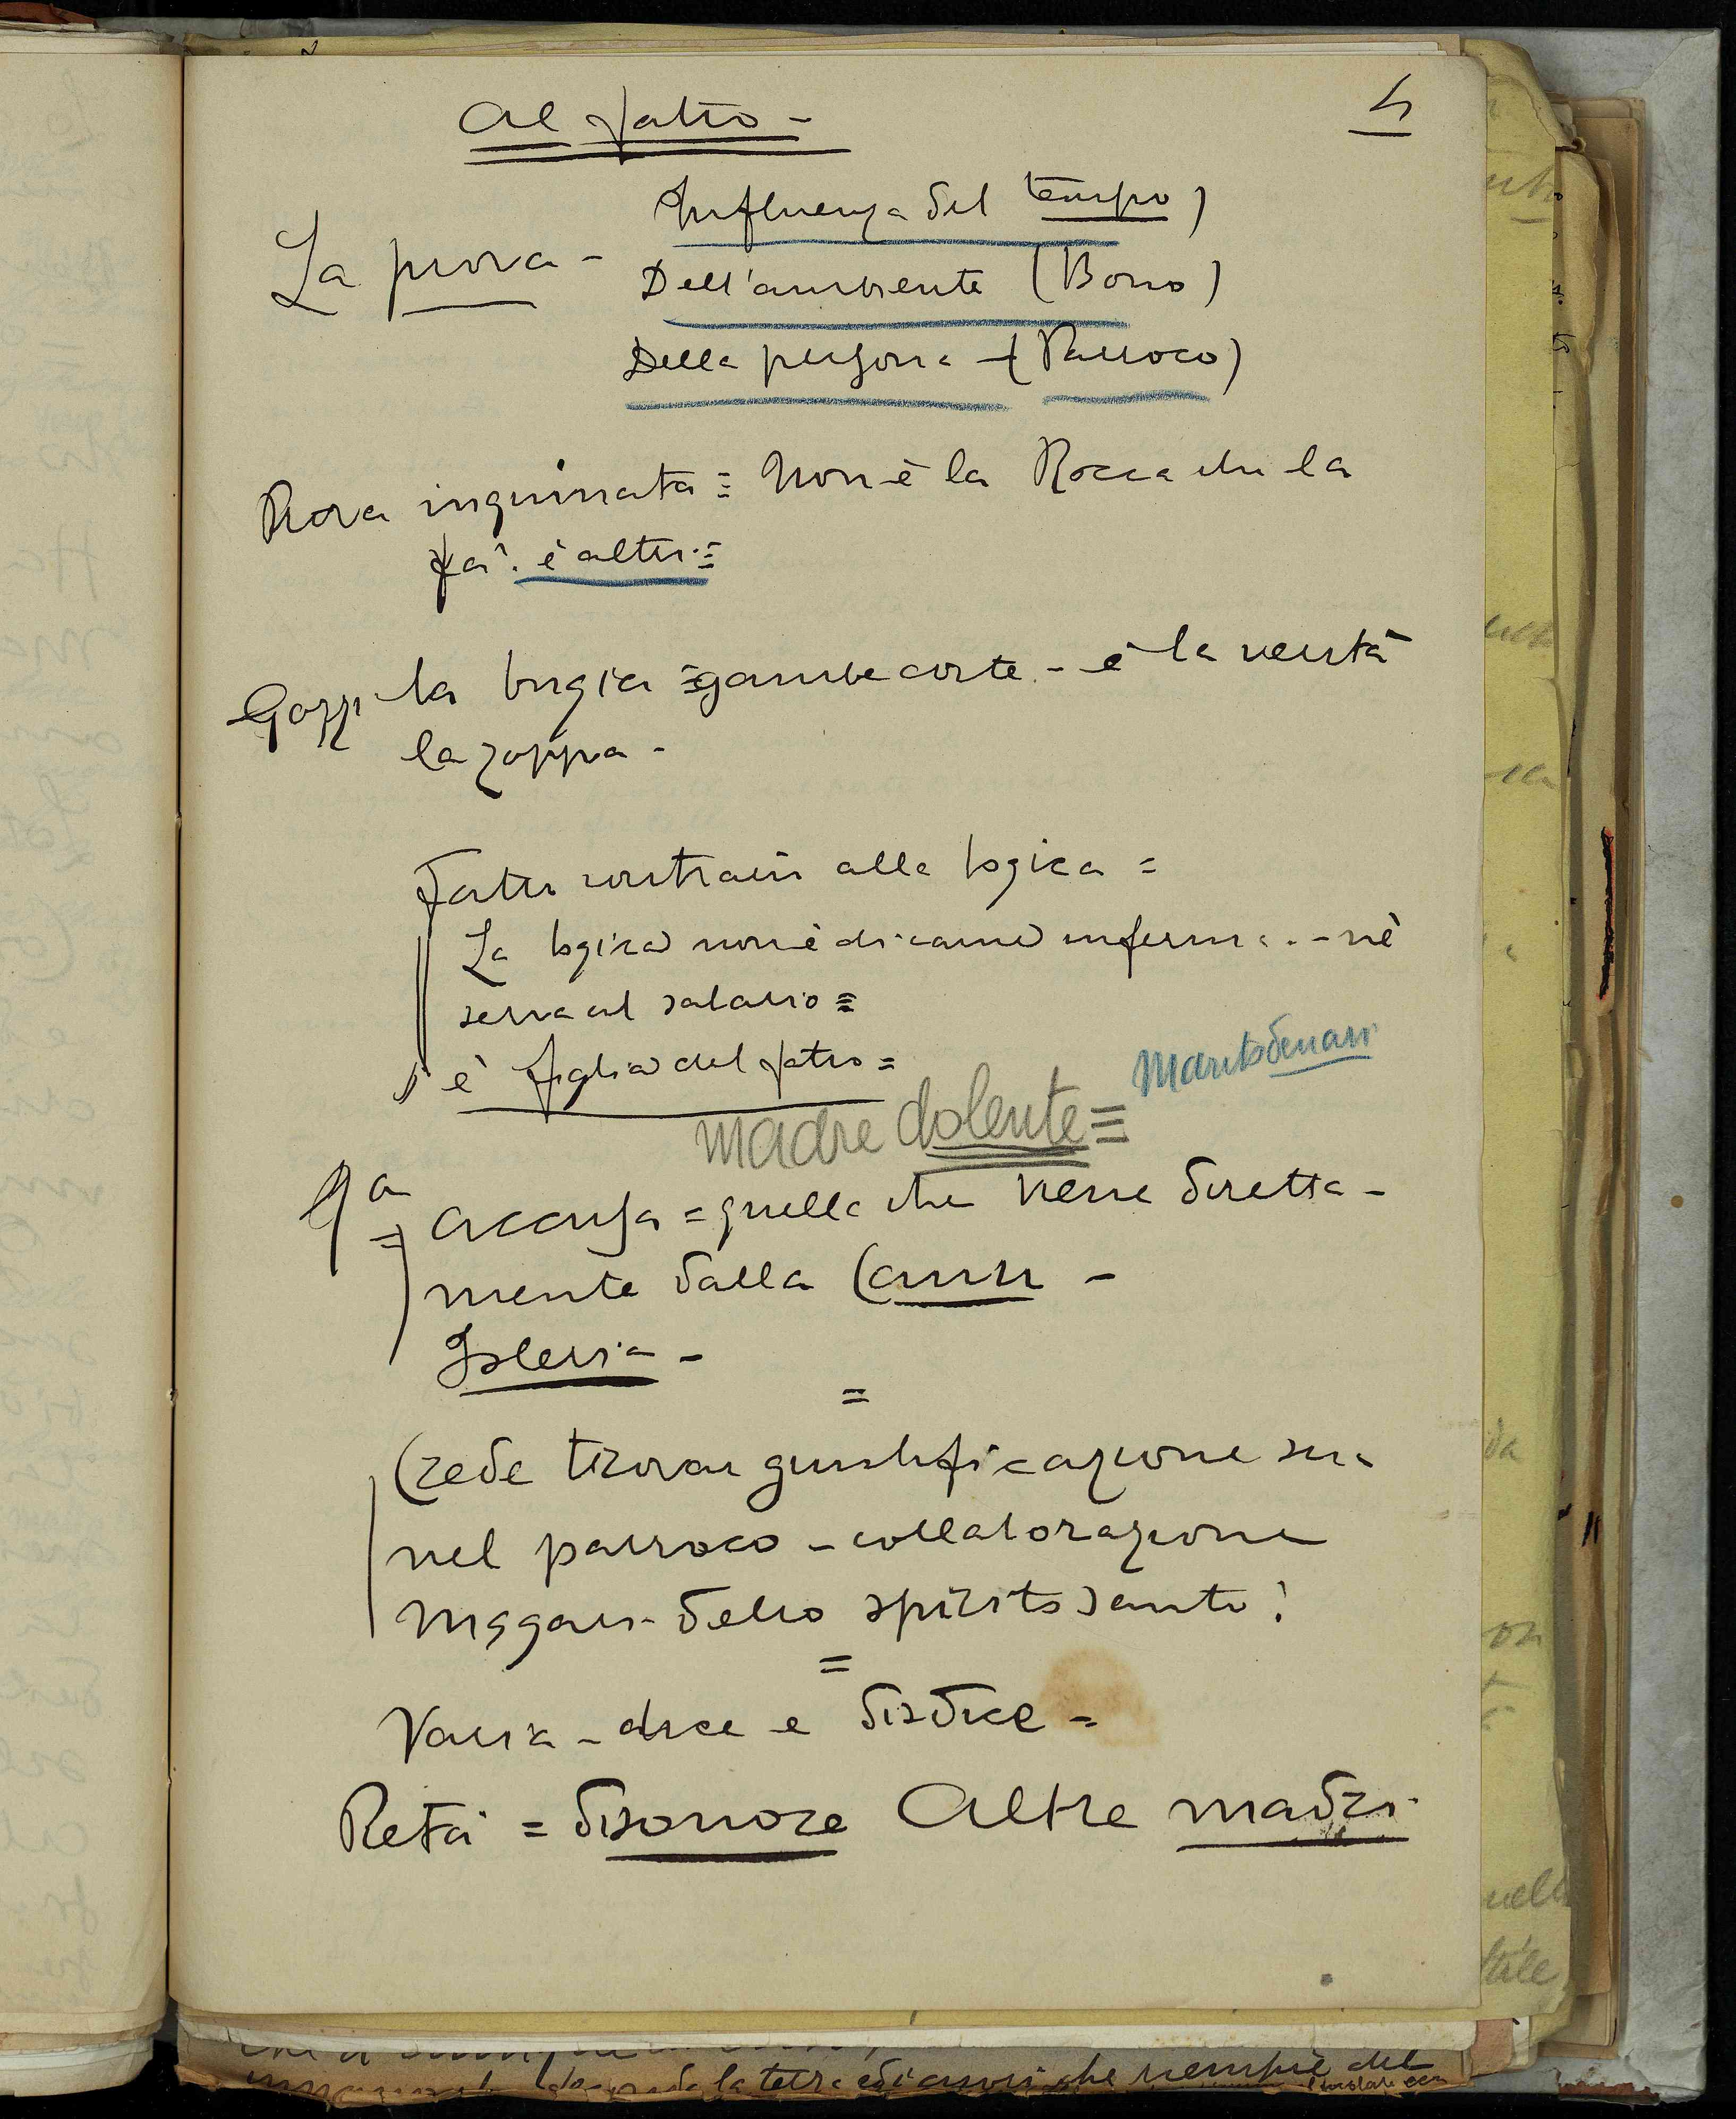 Al fatto -
4
Influenza del tempo)
La prova -
Dell'ambiente (Bono)
Della persona - (Parroco)
Prova inquinata = Non è la Rocca che la
fa'. è altri =
Gozzi la bugia = gambe corte - è la verità
la zoppa -
Fatti contrari alla logica =
La logica non è di carne inferma. - nè
serva al salario =
è figlia del fatto =
Marito denari
madre dolente =
accusa = quella che viene diretta-
mente dalla Cann -
Isleria -
=
Crede trovar giustificazione sua
nel parroco - collaborazione
magari dello spirito santo!
=
Varia - dice e disdice =
Retà = disonore Altre madri